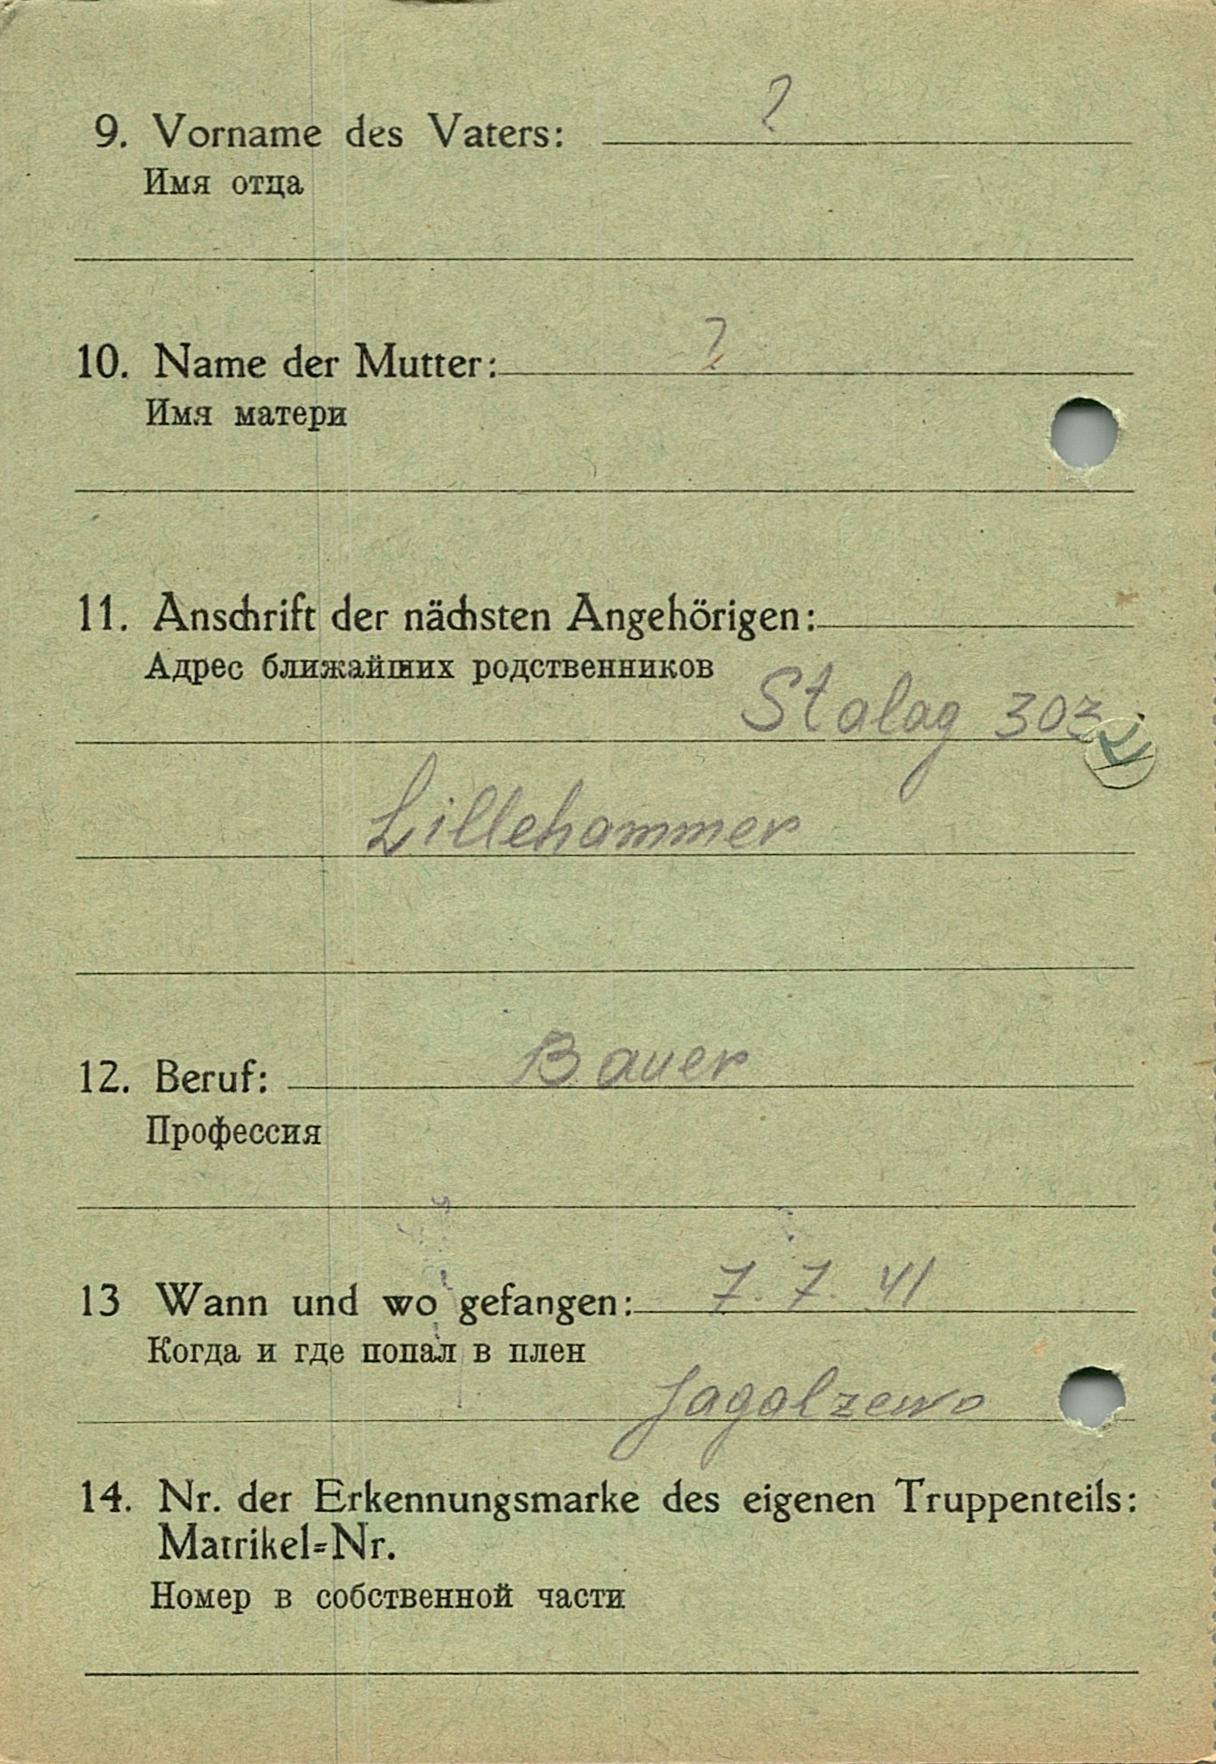 9. Vorname des Vaters: ?
Имя отца
10. Name der Mutter: ?
Имя матери
11. Anschrift der nächsten Angehörigen:
Адрес ближайших родственников
Stalag 303
Lillehammer
12. Beruf: Bauer
Профессия
13 Wann und wo gefangen: 7. 7. 41
Когда и где попал в плен
Jagalzewo
14. Nr. der Erkennungsmarke des eigenen Truppenteils:
Matrikel=Nr.
Номер в собственной части